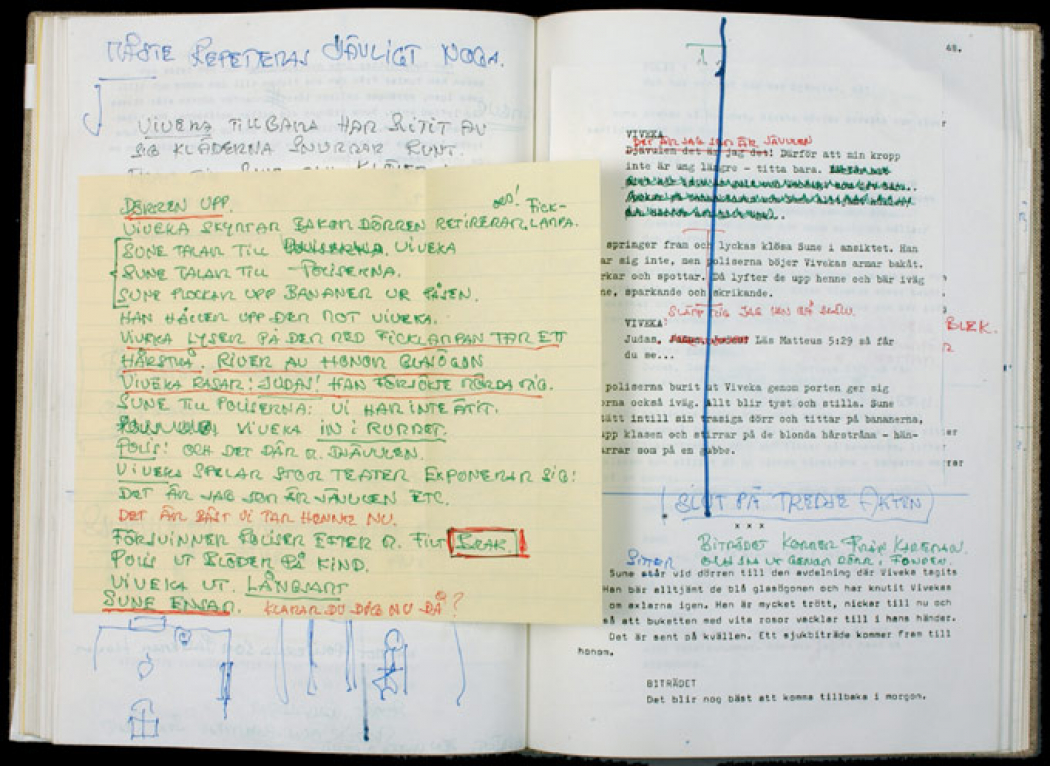 MÅSTE REPETERAS DJÄVLIGT NOGA.
VIVEKA TILLBAKA HAR SLITIT AV
SIG KLÄDERNA SNURRAR RUNT.
DÖRREN UPP.
OBS! FICK-
VIVEKA SKYMTAR BAKOM DÖRREN RETIRERAR. LAMPA.
SUNE TALAR TILL VIVEKA
SUNE TALAR TILL POLISERNA.
SUNE PLOCKAR UPP BANANER UR PÅSEN.
HAN HÅLLER UPP DEM MOT VIVEKA.
VIVEKA LYSER PÅ DEM MED FICKLAMPAN TAR ETT
HÅRSTRÅ. RIVER AV HONOM GLASÖGON
VIVEKA RASAR! JUDAS! HAN FÖRSÖKTE MÖRDA MIG.
SUNE TILL POLISERNA: VI HAR INTE ÄTIT.
VIVEKA IN I RUMMET.
POLIS: OCH DET DÄR Ä. DJÄVULEN.
VIVEKA SPELAR STOR TEATER EXPONERAR SIG:
DET ÄR JAG SOM ÄR DJÄVULEN ETC.
DET ÄR BÄST VI TAR HENNE NU.
FÖRSVINNER POLISER EFTER M. FILT BRAK!
POLIS UT BLÖDER PÅ KIND.
VIVEKA UT. LÅNGSAMT
SUNE ENSAM. KLARAR DU DIG NU DÅ?
48.
VIVEKA
DET ÄR JAG SOM ÄR DJÄVULEN
Djävulen det är jag det! Därför att min kropp
inte är ung längre - titta bara.
springer fram och lyckas klösa Sune i ansiktet. Han
ar sig inte, men poliserna böjer Vivekas armar bakåt.
rkar och spottar. Då lyfter de upp henne och bär iväg
ne, sparkande och skrikande.
SLÄPP MIG JAG KAN GÅ SJÄLV.
VIVEKA
Judas, Läs Matteus 5:29 så får
du se...
BLEK.
poliserna burit ut Viveka genom porten ger sig
rna också iväg. Allt blir tyst och stilla. Sune
ått intill sin trasiga dörr och tittar på bananerna,
pp klasen och stirrar på de blonda hårstråna - hän-
arrar som på en gubbe.
SLUT PÅ TREDJE AKTEN
x x x
BITRÄDET KOMMER FRÅN KAREMAN.
OCH SKA UT GENOM DÖRR I FONDEN.
SITTER
Sune står vid dörren till den avdelning där Viveka tagits
Han bär alltjämt de blå glasögonen och har knutit Vivekas
om axlarna igen. Han är mycket trött, nickar till nu och
så att buketten med vita rosor vacklar till i hans händer.
Det är sent på kvällen. Ett sjukbiträde kommer fram till
honom.
BITRÄDET
Det blir nog bäst att komma tillbaka i morgon.